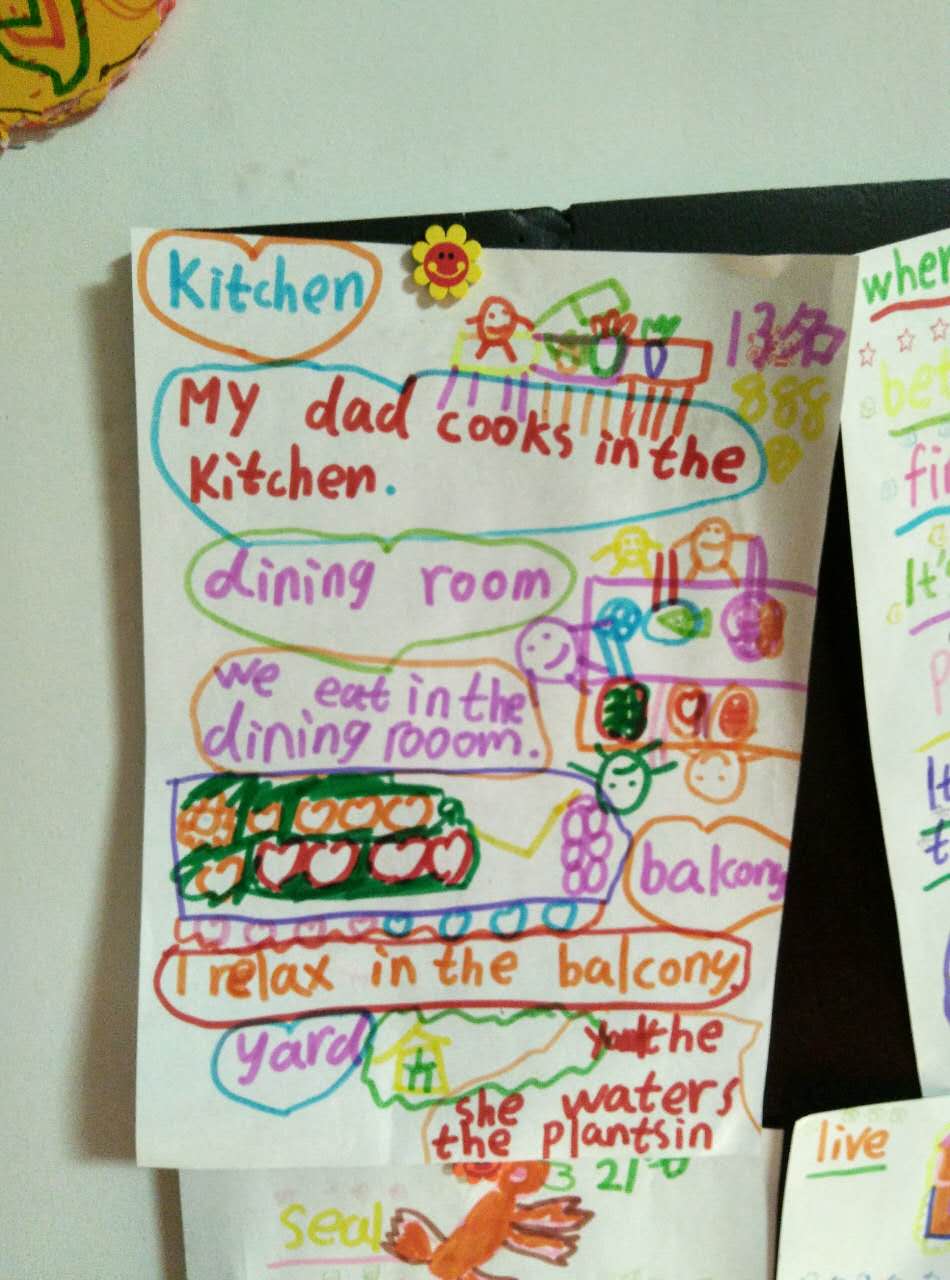 Kitchen
13名
888
My dad cooks in the
Kitchen.
dining room
we eat in the
dining rooom.
balcony
I relax in the balcony.
yard
the
she waters
the plants in
3 21
seal
when
It's
live